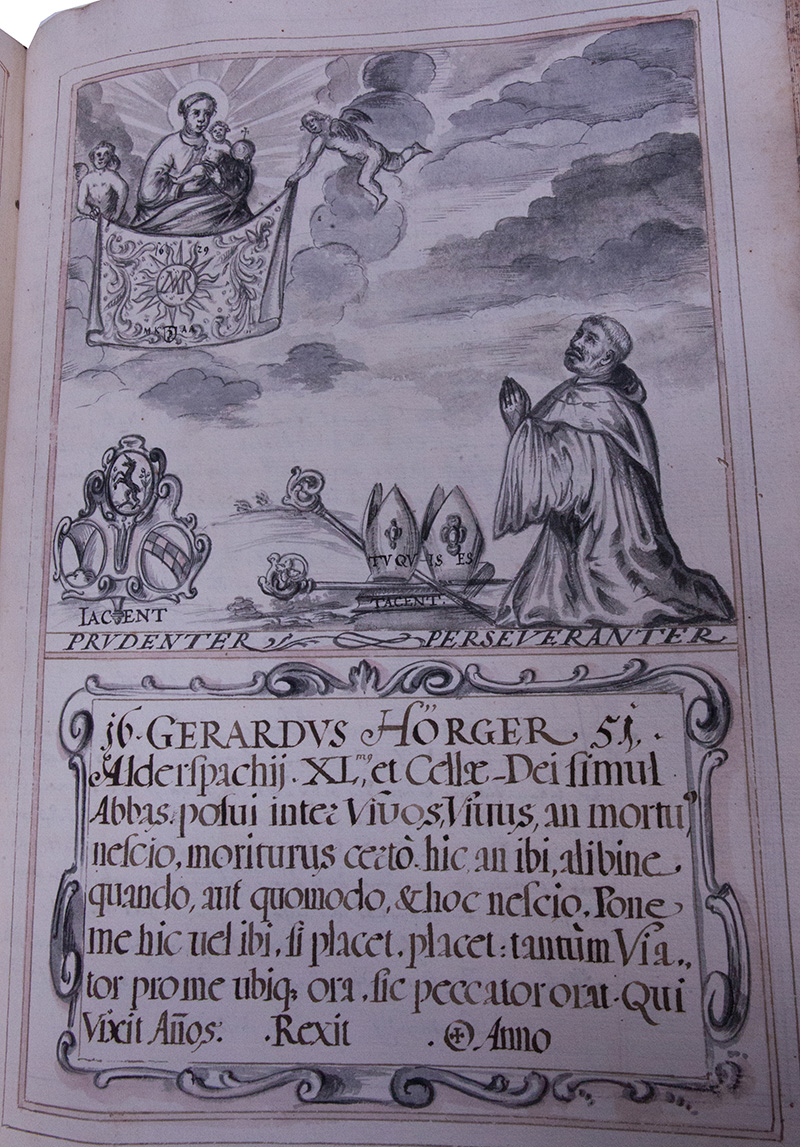 16 29
MAR
IACENT
TV QV-IS ES
TACENT.
PRVDENTER PERSEVERANTER
16·GERARDVS HÖRGER 51.
Alderspachij·XL,mꝰ et Cellæ-Dei simul
Abbas. posui inter Viv̄os, Viuus, an mortuꝰ
nescio, moriturus certò. hic, an ibi, alibine
quando, aut quomodo, & hoc nescio. Pone
me hic uel ibi, si placet. placet: tantùm Via„
tor pro me ubiq; ora. sic peccator orat. Qui
Vixit Años: ·Rexit ·⊕ Anno